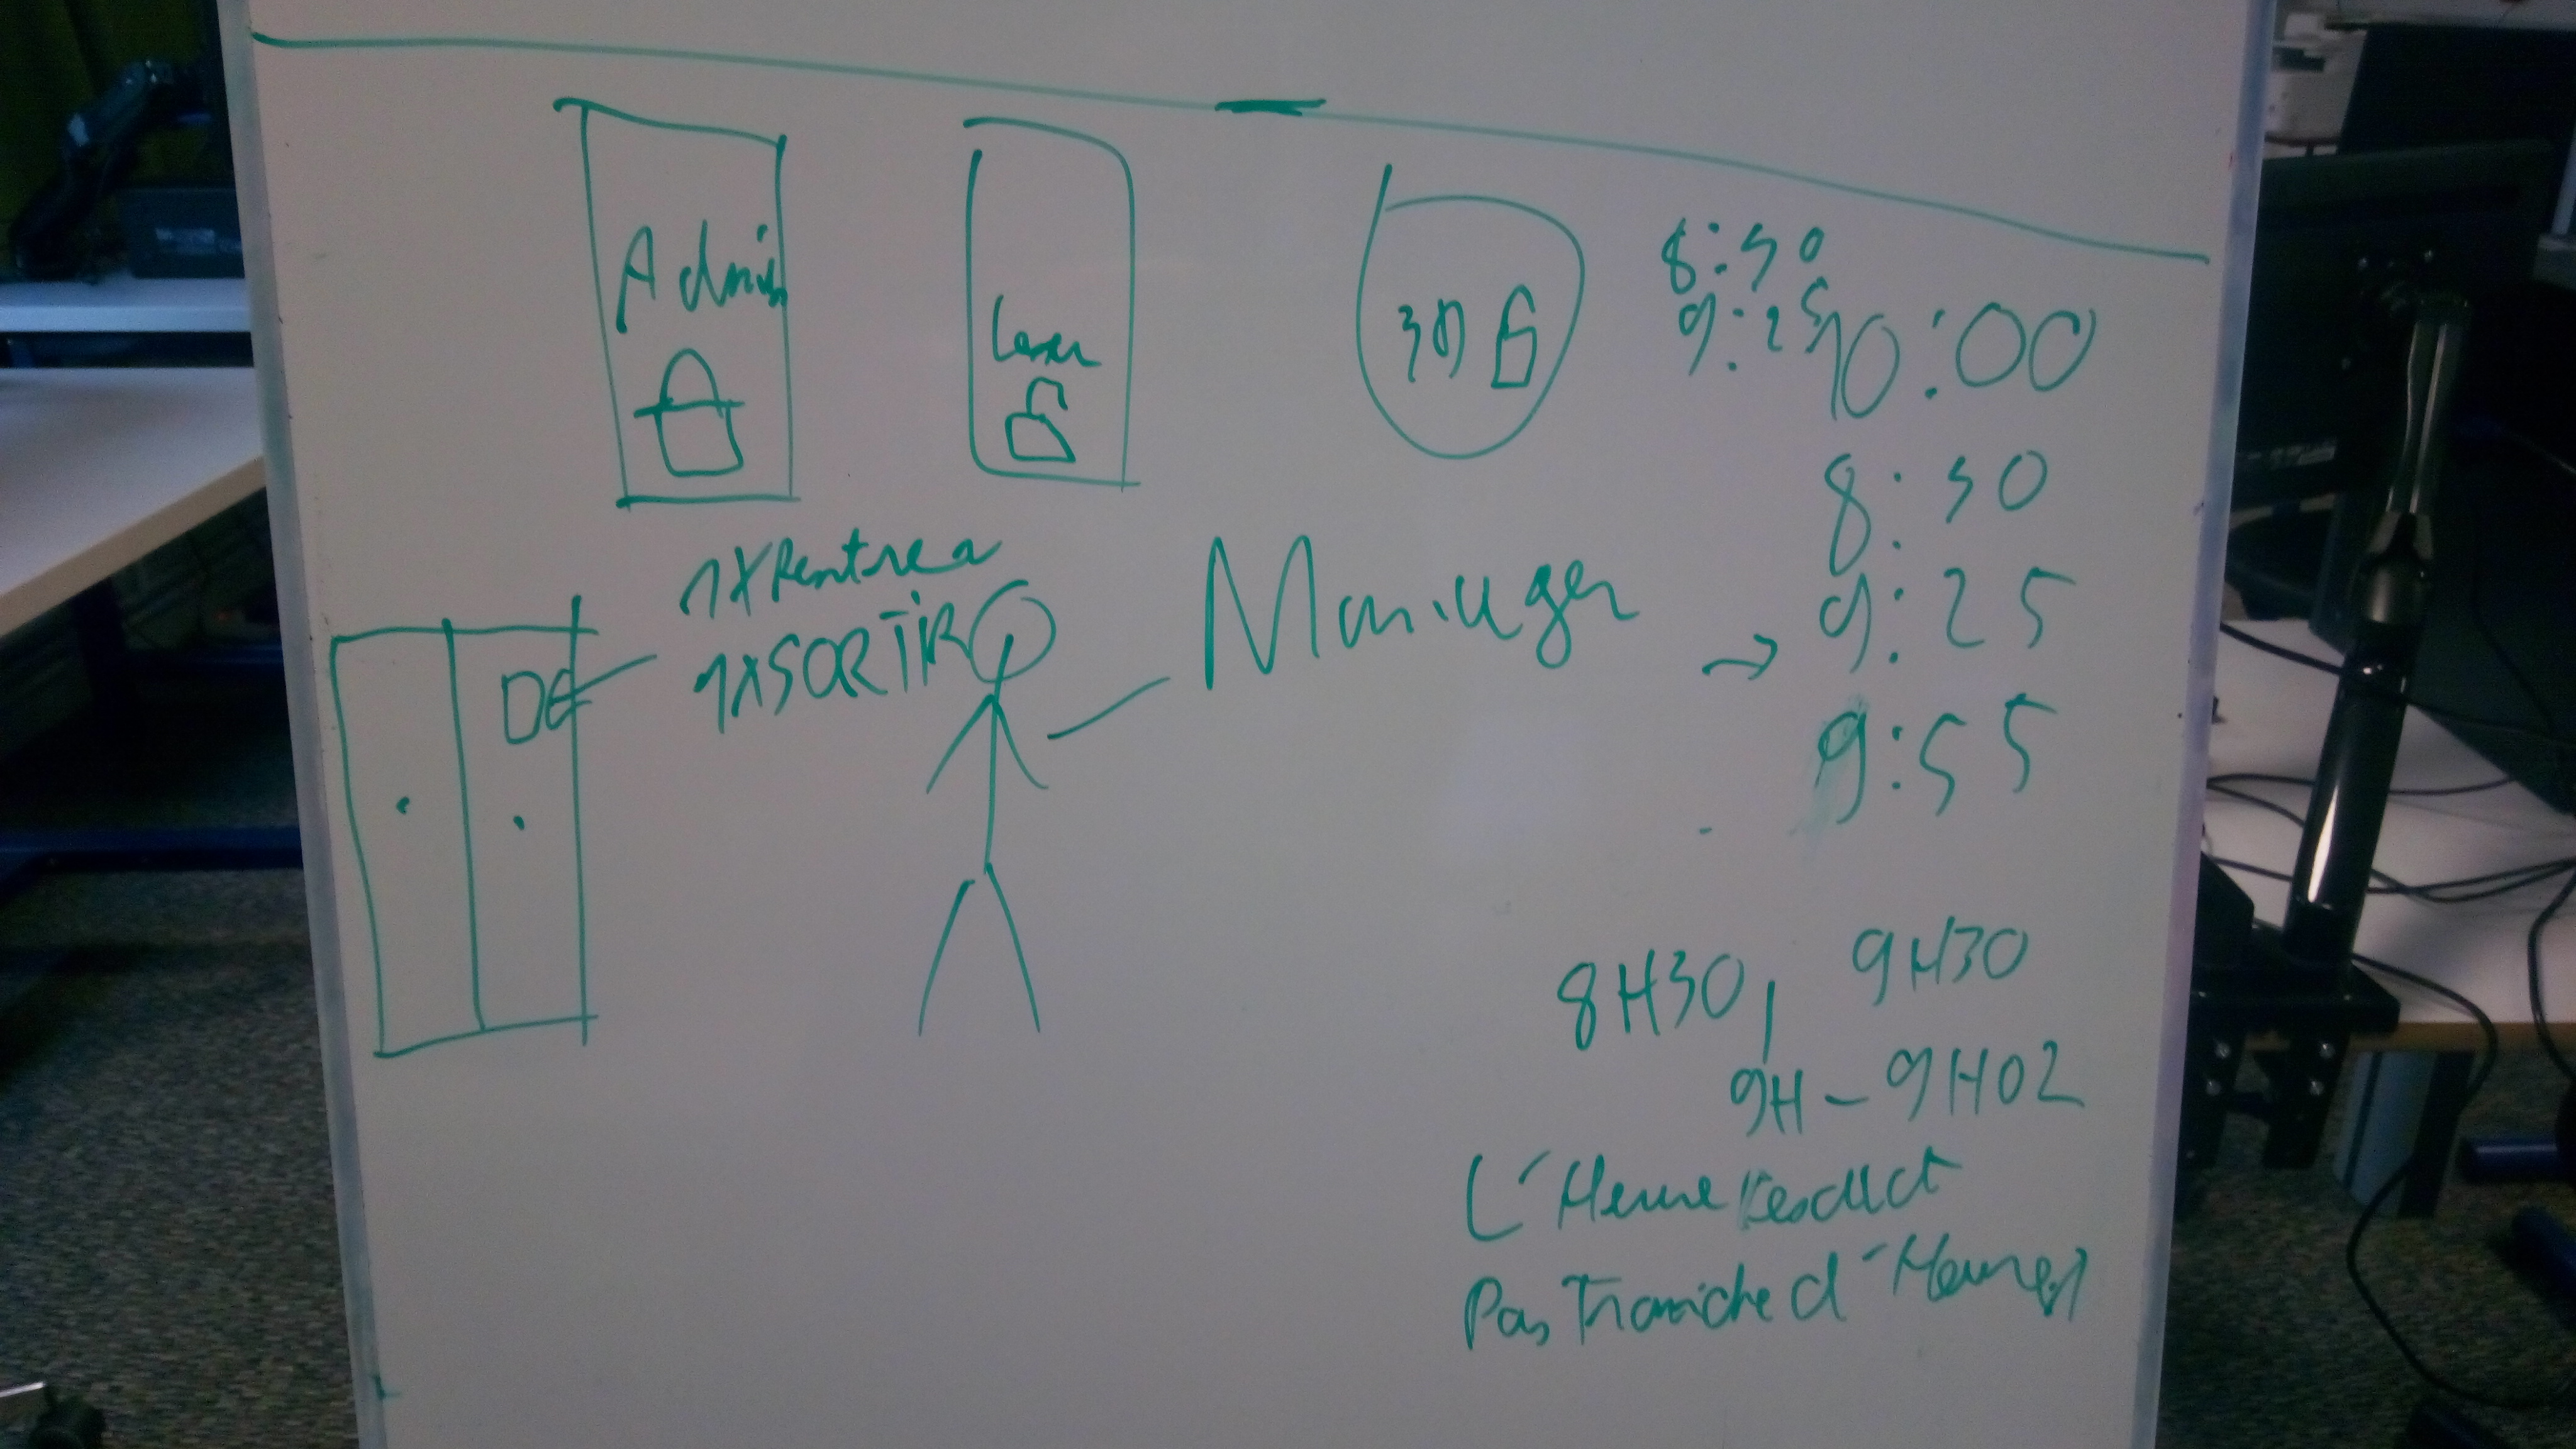 Admin
Laser
3D
8:30
9:25
10:00
8:30
9:25
9:55
1X Rentrea
1XSORTIR
Manager
8H30, 9H30
9H-9H02
L'Heure exact
Pas Traniche d'Heures